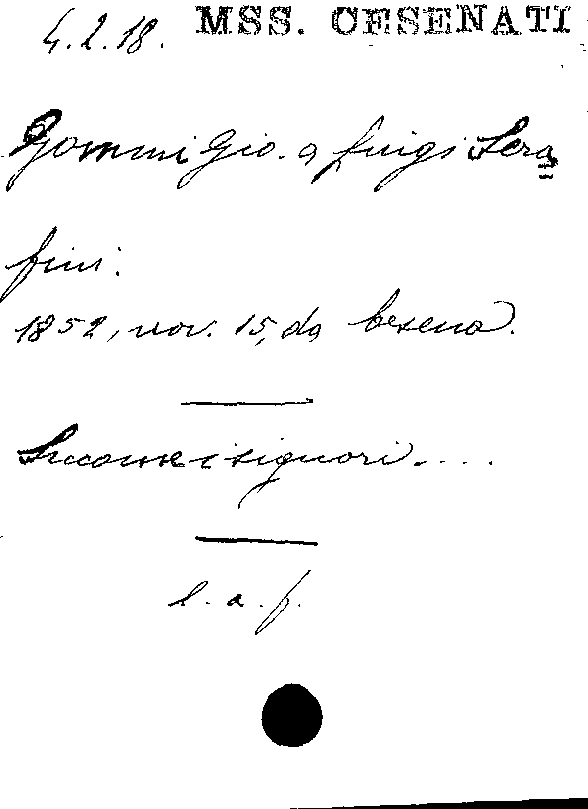 4.2.18. MSS. CESENATI
Gommi Gio. a Luigi Sera
fini.
1852, nov. 15, da Cesena.
Siccome i signori....
l. a. f.